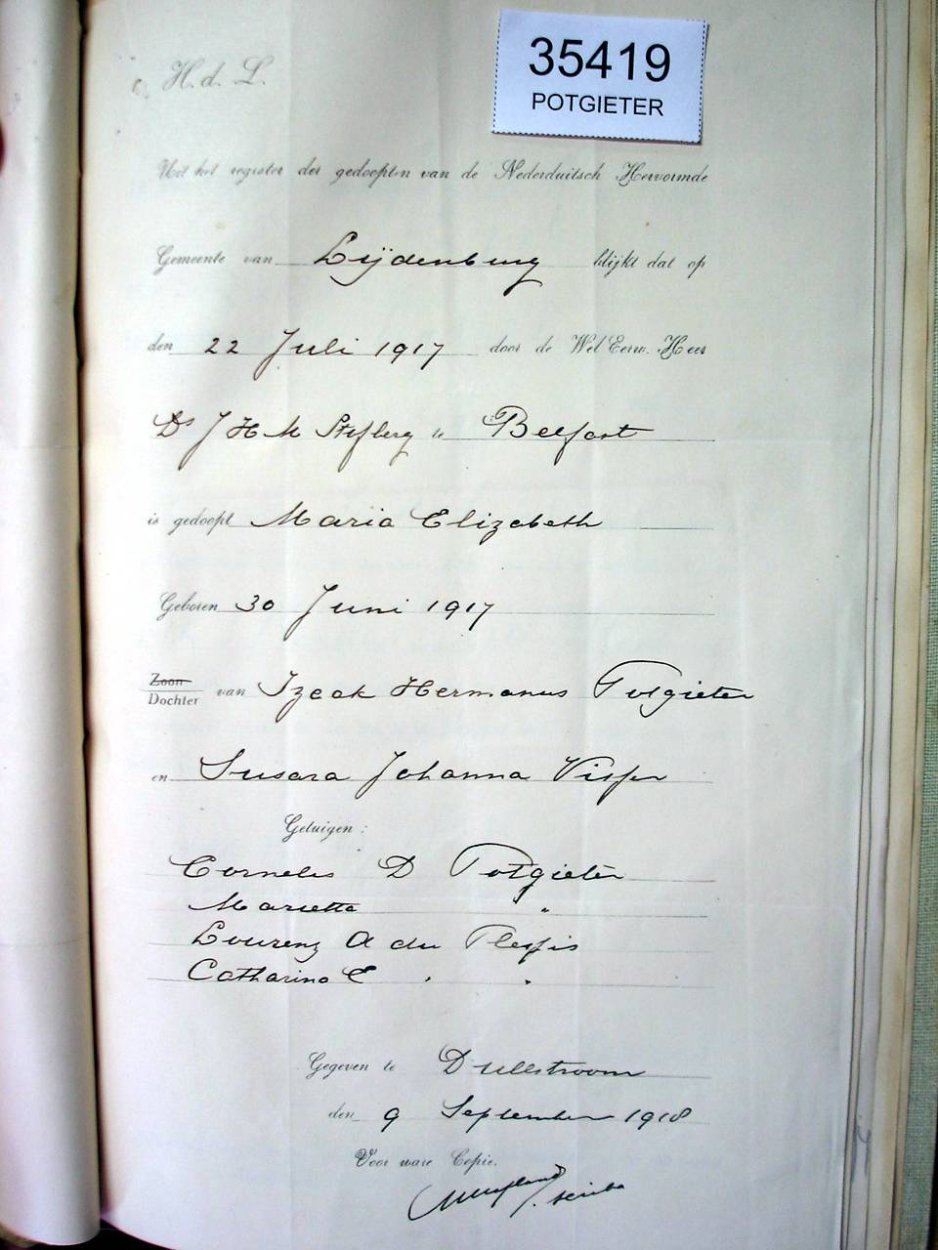 35419
POTGIETER
H. d. L.
Uit het register der gedoopten van de Nederduitsch Hervormde
Gemeente van Lijdenburg blijkt dat op
den 22 Juli 1917 door de Wel Eerw. Heer
Ds J H M te Belfast
is gedoopt Maria Elizabeth
Geboren 30 Juni 1917
Zoon
Dochter van Izeak Hermanus Potgieter
en Susara Johanna Visser
Getuigen:
Cornelis D Potgieter
Marietta "
Lourenz A du Plessis
Catharina E " "
Gegeven te Dullstroom
den 9 September 1918
Voor ware Copie.
scriba